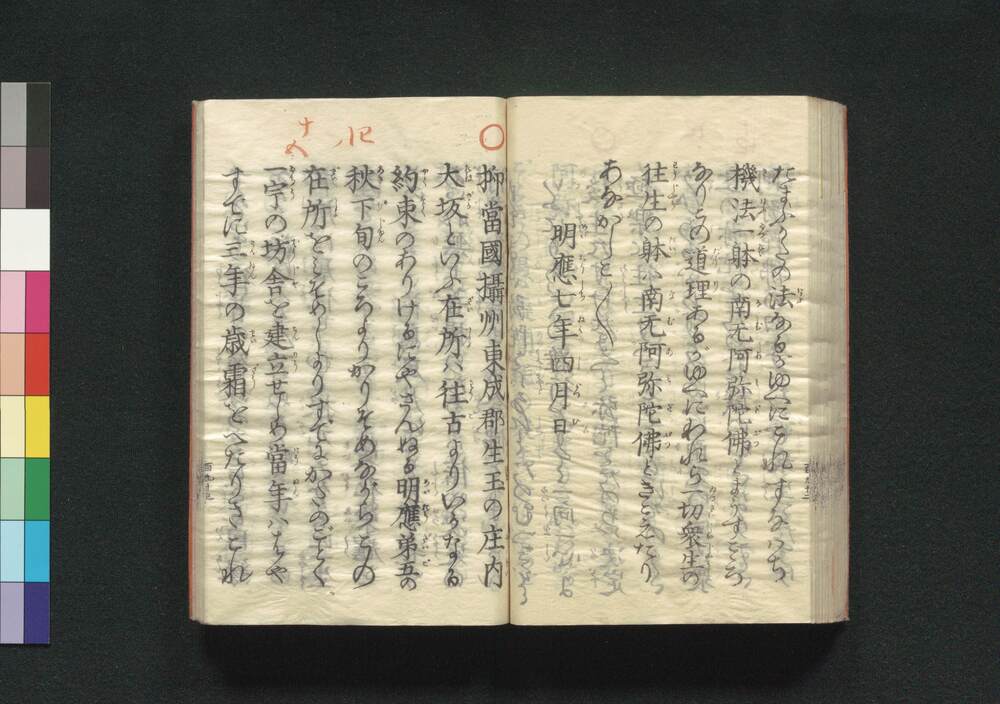 たまふかたの法なるがゆへにこれすなはち
機法一躰の南无阿弥陀佛とまうすこゝろ
なりこの道理あるがゆへにわれら一切衆生の
往生の躰ハ南无阿弥陀佛ときこえたり
あなかしこ〳〵
明應七年四月日
抑當國攝州東成郡生玉の庄内
大坂といふ在所ハ往古よりいかなる
約束のありけるにやさんぬる明應第五の
秋下旬のころよりかりそめながらこの
在所をみそめしよりすでにかたのごとく
一宇の坊舎を建立せしめ當年ハはや
すでに三年の歳霜をへたりきこれ